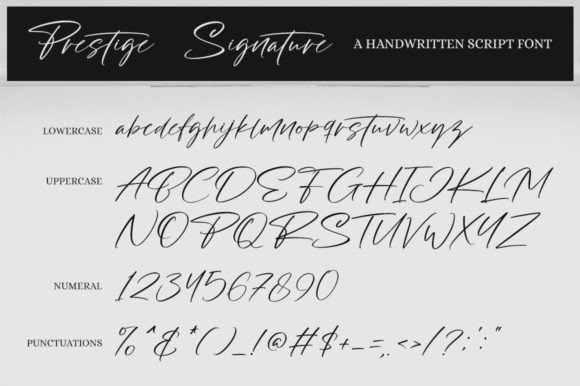 Prestige Signature A HANDWRITTEN SCRIPT FONT
LOWERCASE abcdefghijklmnopqrstuvwxyz
UPPERCASE ABCDEFGHIJKLM
NOPQRSTUVWXYZ
NUMERAL 1234567890
PUNCTUATIONS %^&*()_!@#$+-=,.<>/?;':"